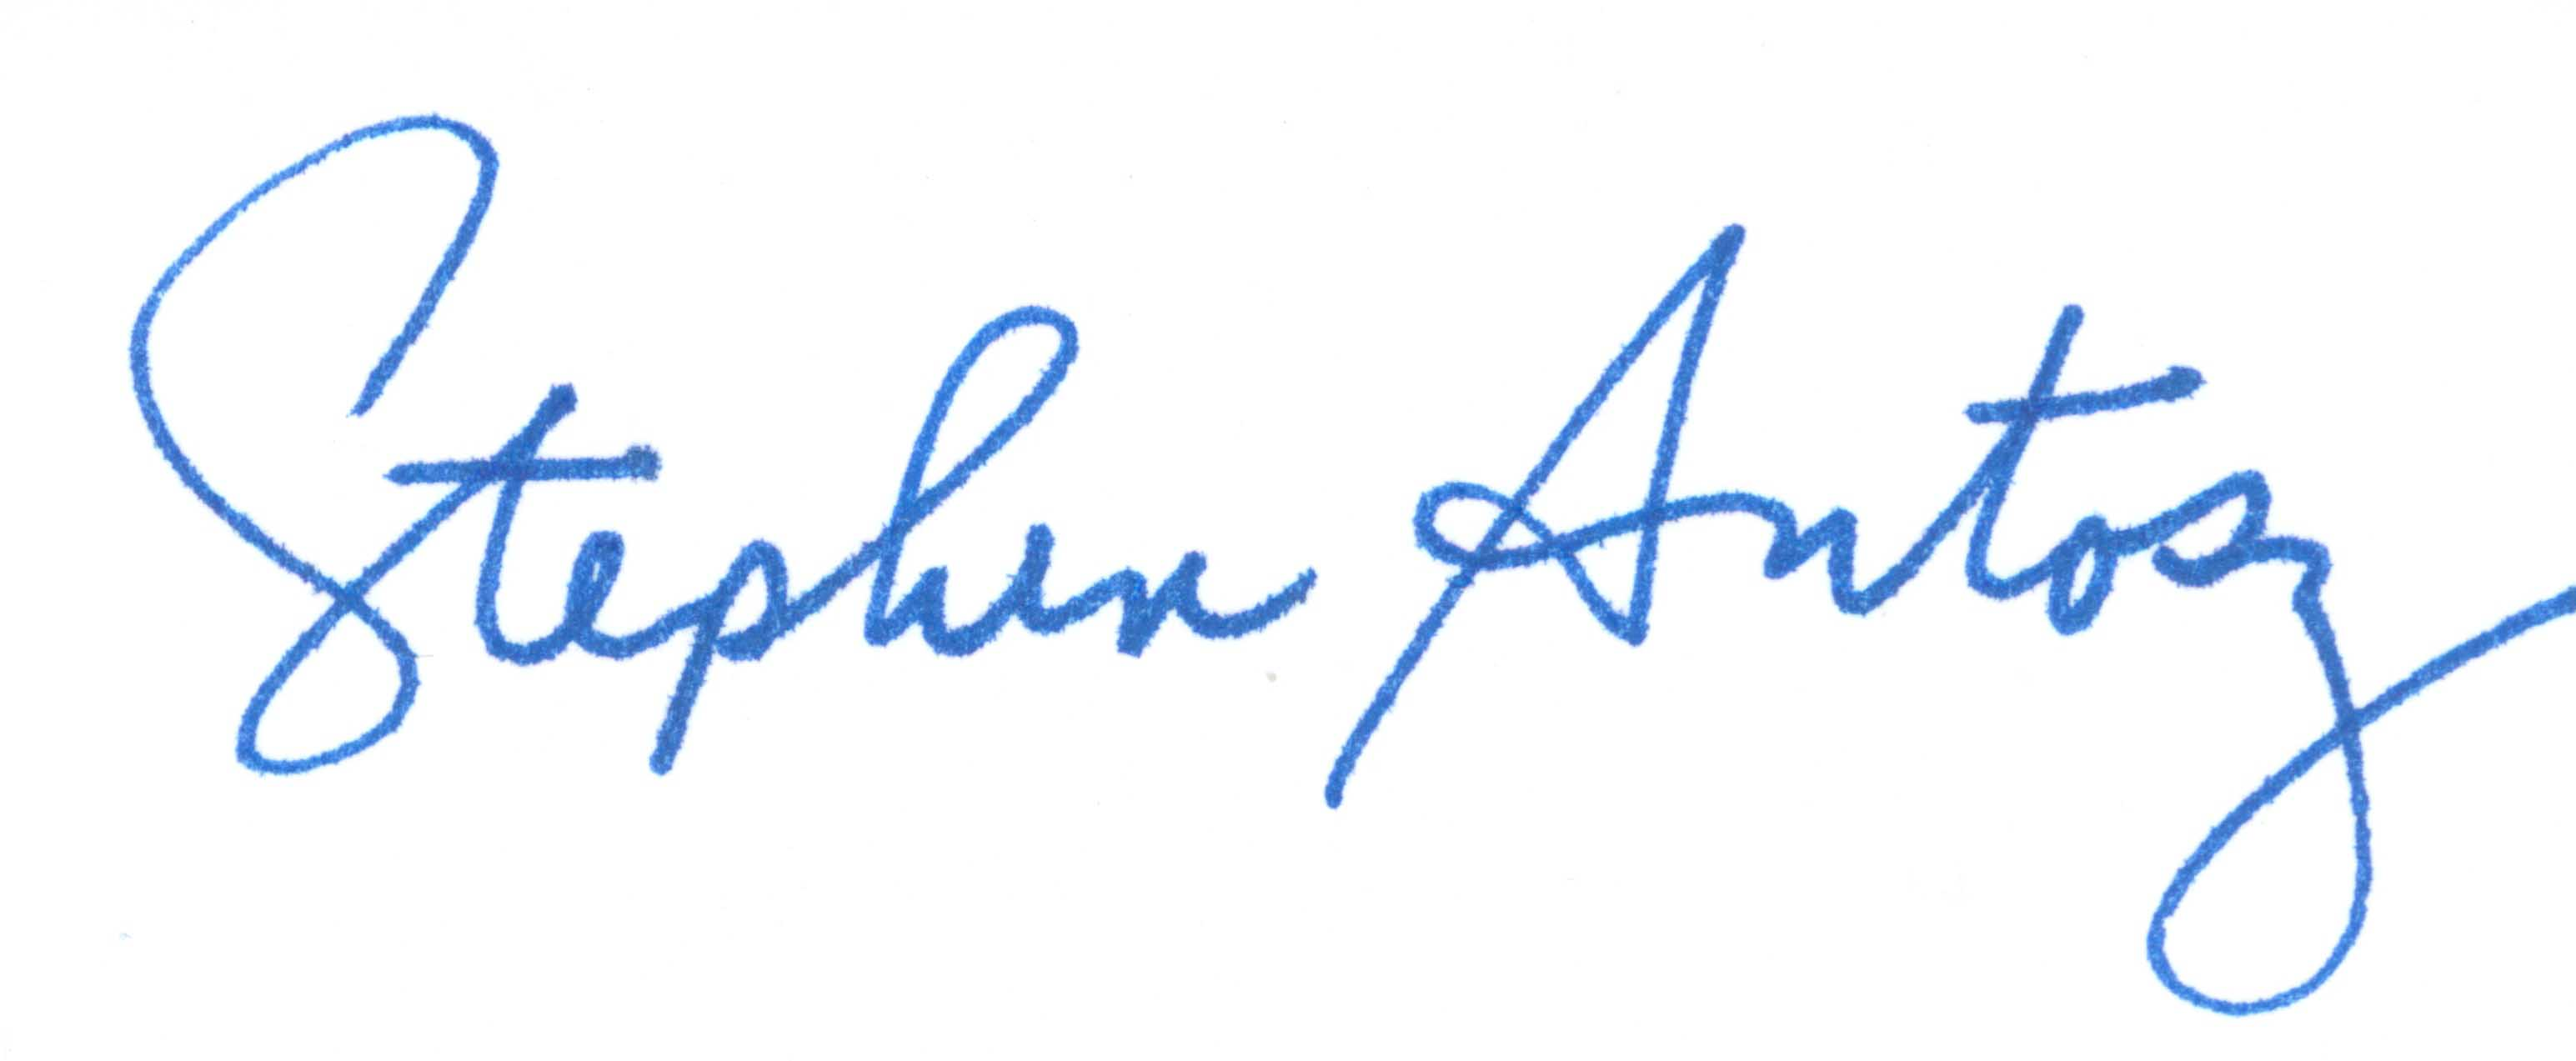 Stephen Antosz